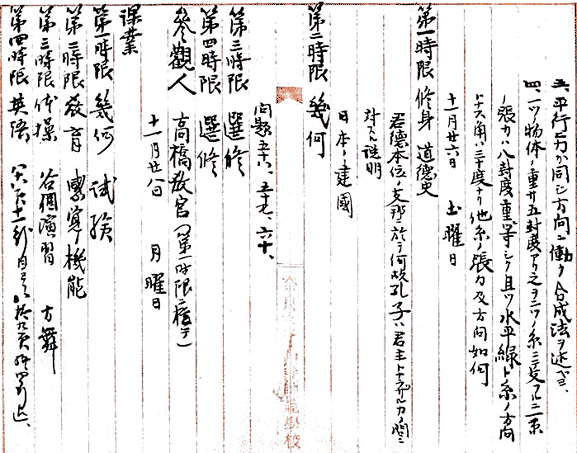 三、平行ノ力ガ同シ方向ニ働ク合成法ヲ述ベヨ
四、一ツノ物体ノ重サ五封度アリ之ヲ二ツノ糸ニ受クルニ一糸
ノ張力ハ八封度重ニ等シク且ツ水平線ト糸ノ方向
トナス角ハ三十度ナリ他糸ノ張力及方向如何
十一月廿六日 土曜日
第一時限 修身 道徳史
君徳本位ノ支那ニ於テ何故孔子ハ君主トナラザルカノ問ニ
対スル説明
日本ノ建國
第二時限 幾何
問題五十六、五十七、六十、
第三時限 選修
第四時限 選修
參觀人 高橋教官(第一時限ニ於テ)
十一月廿八日 月曜日
課業
第一時限 幾何 試験
第二時限 教育
第三時限 体操 各個演習 方舞
第四時限 英語